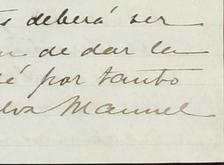 s deberá ser
n de dar la
é por tanto
lva Manuel